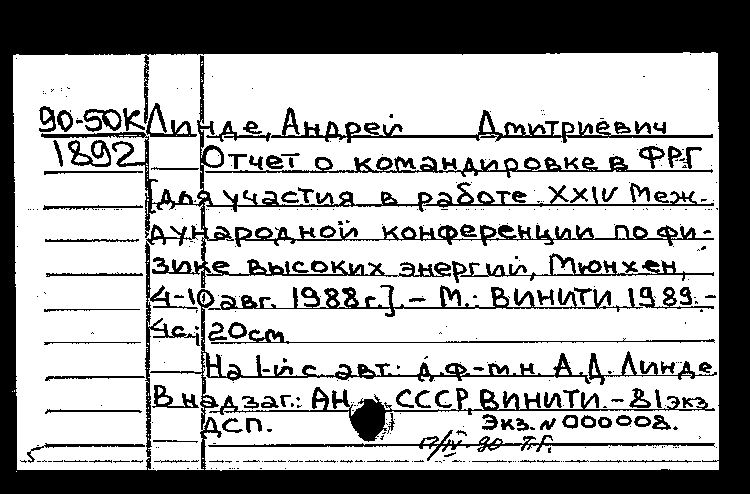 90-50К Линде, Андрей Дмитриевич
1892 Отчет о командировке в ФРГ
[для участия в работе XXIV Меж-
дународной конференции по фи-
зике высоких энергий, Мюнхен,
4-10 авг. 1988г.]. – М.: ВИНИТИ, 1989. –
4с.; 20см.
На 1-й с. авт.: д.ф.-м.н. А.Д. Линде.
В надзаг.: АН СССР, ВИНИТИ. – 81 экз.
ДСП. Экз. N 000008.
90 Т.Г.